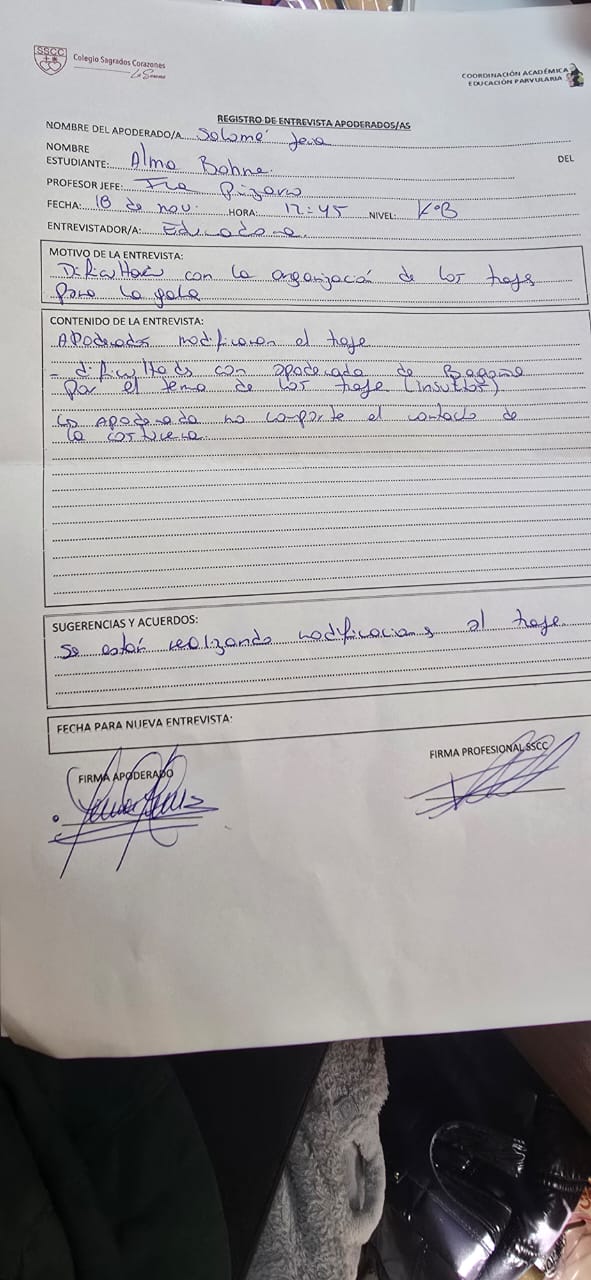 SSCC
Colegio Sagrados Corazones
La Serena
COORDINACIÓN ACADÉMICA
EDUCACIÓN PARVULARIA
REGISTRO DE ENTREVISTA APODERADOS/AS
NOMBRE DEL APODERADO/A Salomé
NOMBRE DEL
ESTUDIANTE: Alma Bohne.
PROFESOR JEFE: Fca Pizarro
FECHA: 18 de nov. HORA: 12:45 NIVEL: K°B
ENTREVISTADOR/A: Educadora.
MOTIVO DE LA ENTREVISTA:
Dificultades con la organización de los trajes
para la gala
CONTENIDO DE LA ENTREVISTA:
Apoderados modificaron el traje
- dificultades con apoderada de
por el tema de los traje (insultos)
La apoderada no comparte el contacto de
la costurera
SUGERENCIAS Y ACUERDOS:
Se están realizando modificaciones al traje.
FECHA PARA NUEVA ENTREVISTA:
FIRMA APODERADO
FIRMA PROFESIONAL SSCC